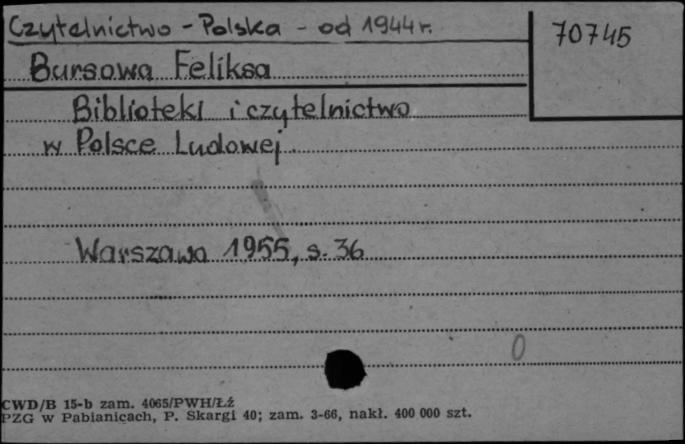 Czytelnictwo - Polska - od 1944 r.
70745
Bursowa Feliksa
Biblioteki i czytelnictwo
w Polsce Ludowej
Warszawa 1955, s. 36
0
CWD/B 15-b zam. 4065/PWH/Łź
PZG w Pabianicach, P. Skargi 40; zam. 3-66, nakł. 400 000 szt.